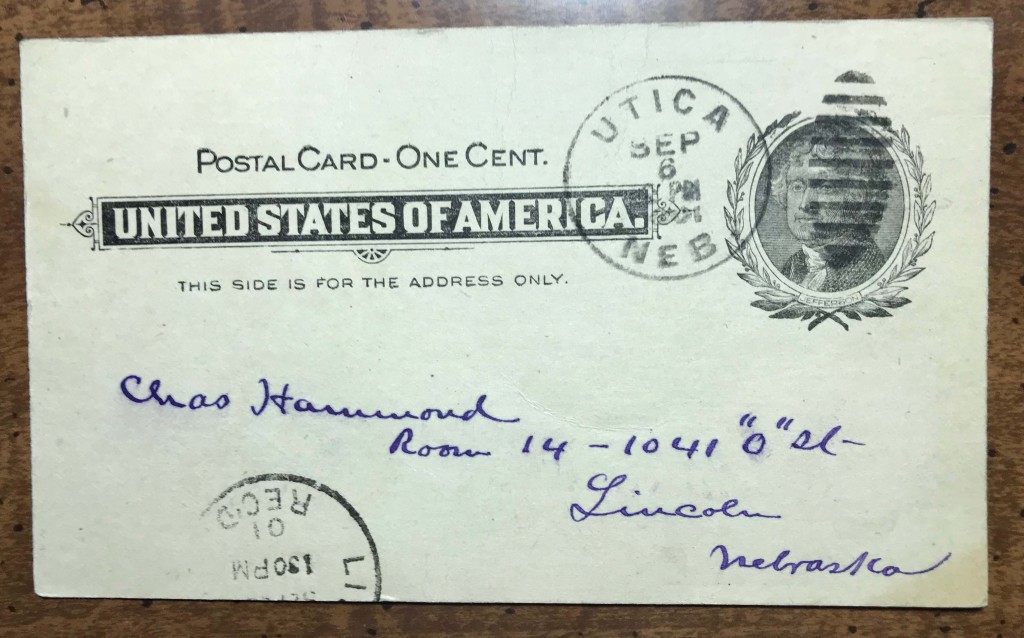 POSTAL CARD - ONE CENT.
UNITED STATES OF AMERICA.
THIS SIDE IS FOR THE ADDRESS ONLY.
UTICA
SEP
6
PM
NEB
JEFFERSON
Chas Hammond
Room 14 - 1041 "O" St
Lincoln
Nebraska
REC'D
01
130 PM
LI